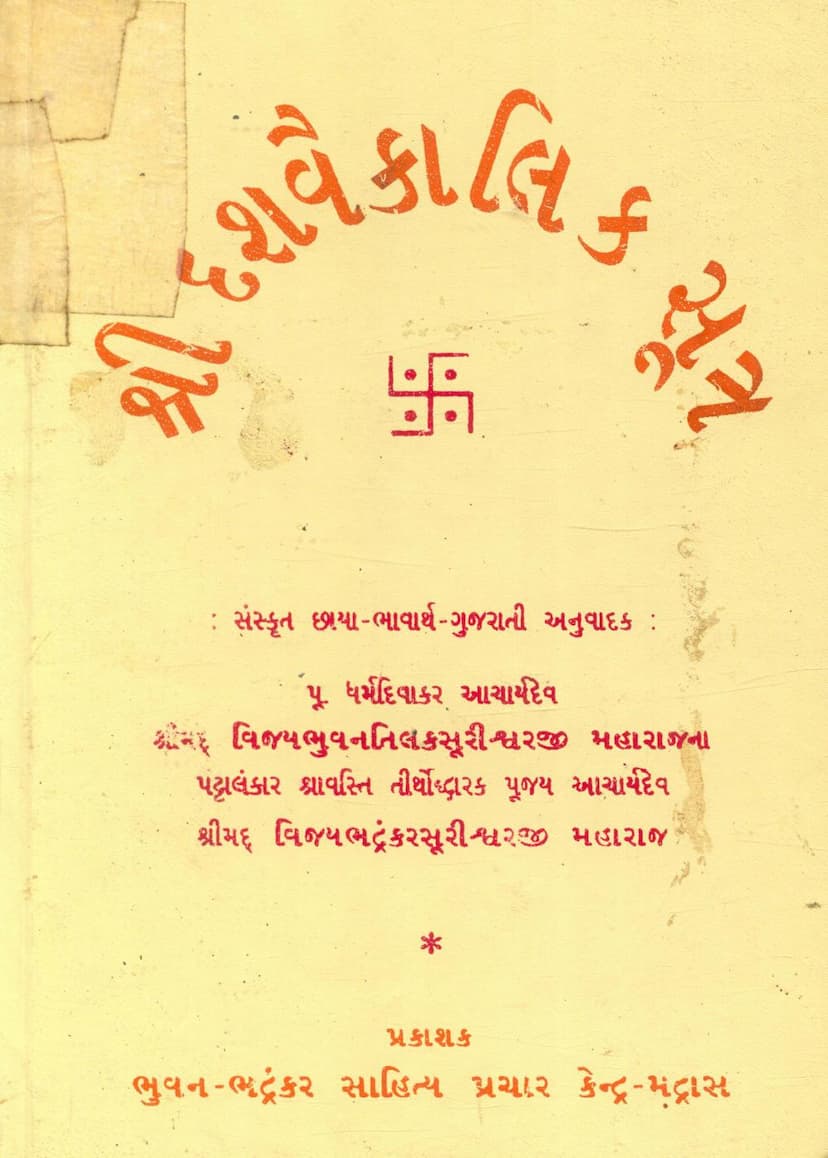 શ્રી દશવૈકાલિક સૂત્ર
: સંસ્કૃત છાયા-ભાવાર્થ-ગુજરાતી અનુવાદક :
પૂ. ધર્મદિવાકર આચાર્યદેવ
શ્રીમદ્ વિજયભુવનતિલકસૂરીશ્વરજી મહારાજના
પટ્ટાલંકાર શ્રાવસ્તિ તીર્થોદ્ધારક પૂજય આચાર્યદેવ
શ્રીમદ્ વિજયભદ્રંકરસૂરીશ્વરજી મહારાજ
*
પ્રકાશક
ભુવન-ભદ્રંકર સાહિત્ય પ્રચાર કેન્દ્ર-મદ્રાસ